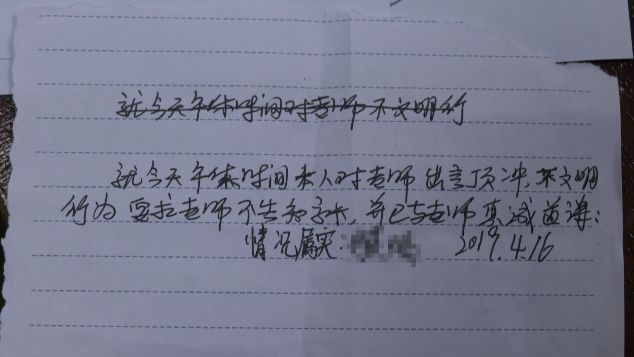 就今天午休时间对老师不文明行
就今天午休时间本人对老师出言顶冲,不文明
行为 老师不告知家长,并已与老师真诚道谦:
情况属实: 2019.4.16